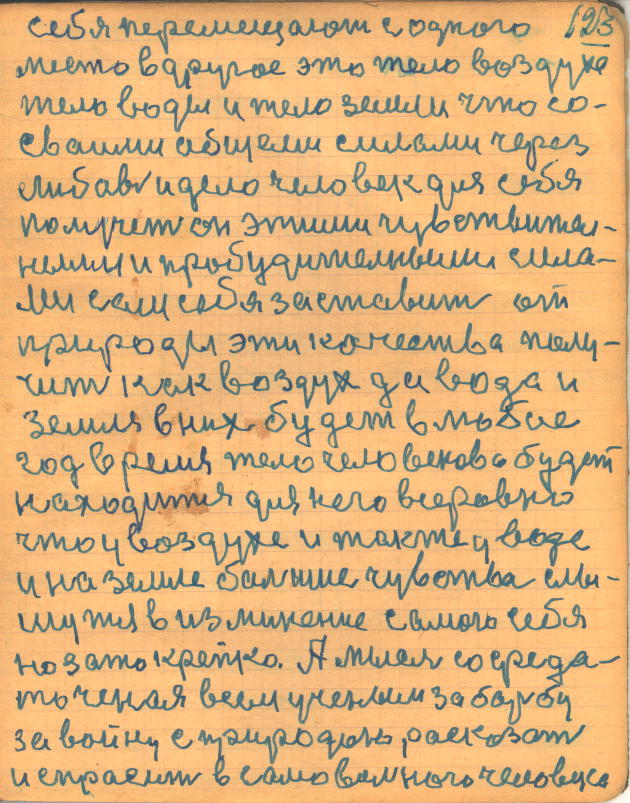 себя перемещают с одного 123
место в другое это тело воздуха
тело воды и тело земли что со-
сваими общеми силами через
любавь и дело человек для себя
получет он этими чувствител-
ными и пробудителными сила-
ми сам себя заставит от
природы эти качества полу-
чит как воздух да вода и
земля в них будет в любое
год время тело человеково будет
находится для него всеровно
что у воздухе и также у воде
и на земле
чувства
в изминение самого себя
но зато крепко. А мысля сосреда-
точеная всем ученым за борбу
за войну с природою, расказат
и спрасит в самовольного человека